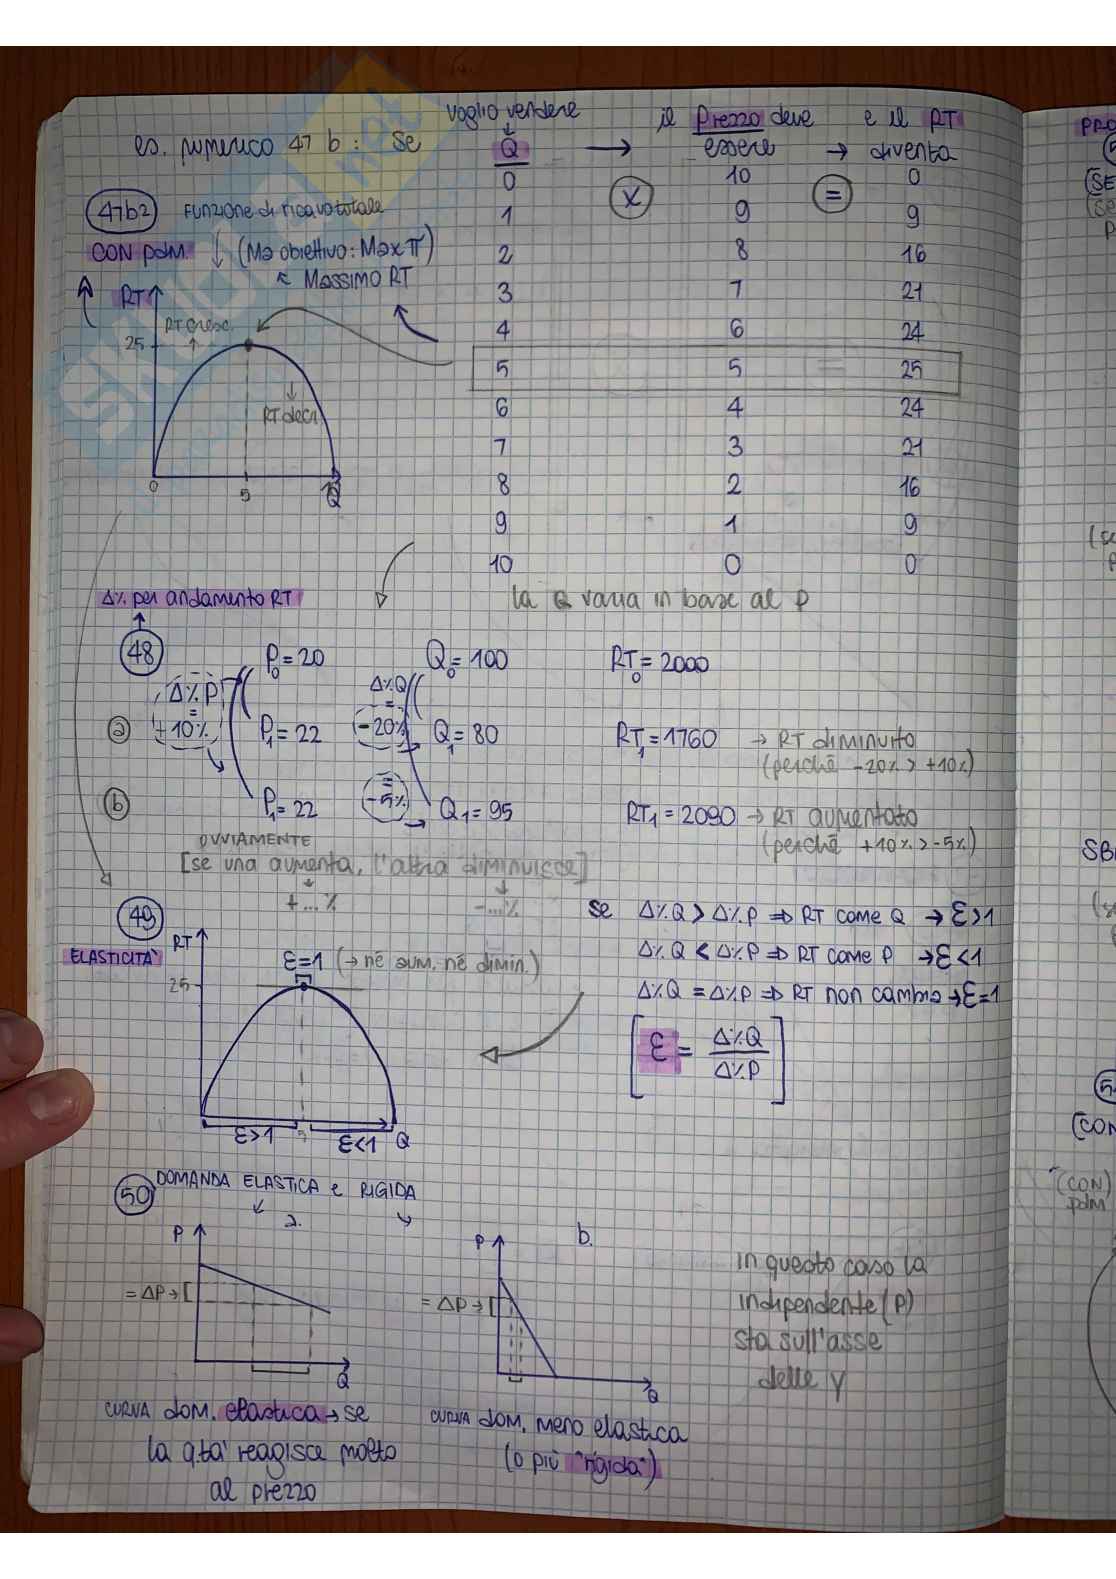 es. numerico 47 b: se voglio vendere Q → il prezzo deve essere → e il RT diventa
0 x 10 = 0
1 9 9
2 8 16
3 7 21
4 6 24
5 5 = 25
6 4 24
7 3 21
8 2 16
9 1 9
10 0 0
47b2 Funzione di ricavo totale
CON pdm. ↓ (Ma obiettivo: Max π)
Massimo RT
RT
RT cresc.
25
RT decr
0 5 10 Q
la Q varia in base al P
Δ% per andamento RT
48
P0 = 20 Q0 = 100 RT0 = 2000
Δ%P = +10% Δ%Q =
a P1 = 22 -20% Q1 = 80 RT1 = 1760 → RT diminuito
(perché -20% > +10%)
b P1 = 22 = -5% Q1 = 95 RT1 = 2090 → RT aumentato
(perché +10% > -5%)
OVVIAMENTE
[se una aumenta, l'altra diminuisce]
+...% -...%
49
ELASTICITÀ
RT
25
ε=1 (→ né aum. né dimin.)
ε>1 5 ε<1 Q
se Δ%Q > Δ%P ⇒ RT come Q → ε>1
Δ%Q < Δ%P ⇒ RT come P → ε<1
Δ%Q = Δ%P ⇒ RT non cambia → ε=1
[ε = Δ%Q / Δ%P]
50 DOMANDA ELASTICA e RIGIDA
a.
P
= ΔP →
Q
b.
P
= ΔP →
Q
in questo caso la
indipendente (P)
sta sull'asse
delle y
CURVA dom. elastica → se
la q.tà reagisce molto
al prezzo
CURVA dom. meno elastica
(o più "rigida")
PRO
(SE
SB
(CON
(CON)
pdm